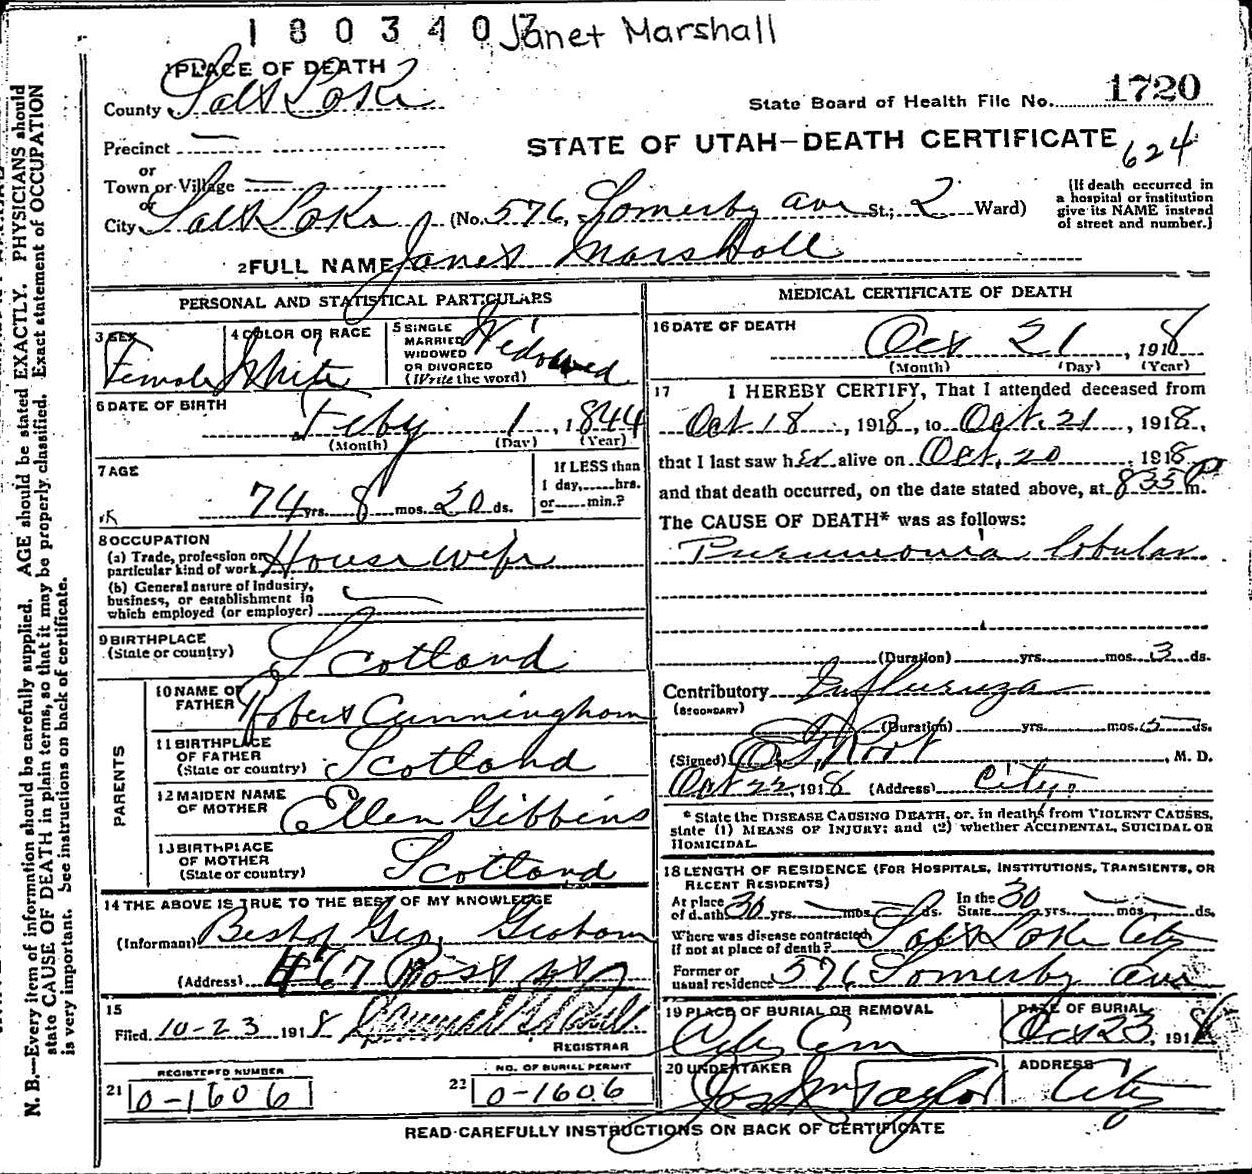 1803407 Janet Marshall
1 PLACE OF DEATH
County Salt Lake
State Board of Health File No. 1720
Precinct —
STATE OF UTAH—DEATH CERTIFICATE
624
or
Town or Village —
or
City Salt Lake (No. 576, Somerby Ave St.; 2 Ward)
(If death occurred in
a hospital or institution
give its NAME instead
of street and number.)
2 FULL NAME Janet Marshall
PERSONAL AND STATISTICAL PARTICULARS
3 SEX
Female
4 COLOR OR RACE
White
5 SINGLE
MARRIED
WIDOWED
OR DIVORCED
(Write the word)
Widowed
6 DATE OF BIRTH
Feby 1, 1844
(Month) (Day) (Year)
7 AGE
74 yrs. 8 mos. 20 ds.
If LESS than
1 day,......hrs.
or......min.?
8 OCCUPATION
(a) Trade, profession or
particular kind of work Housewife
(b) General nature of industry,
business, or establishment in
which employed (or employer)
9 BIRTHPLACE
(State or country) Scotland
PARENTS
10 NAME OF
FATHER Robert Cunningham
11 BIRTHPLACE
OF FATHER
(State or country) Scotland
12 MAIDEN NAME
OF MOTHER Ellen Gibbins
13 BIRTHPLACE
OF MOTHER
(State or country) Scotland
14 THE ABOVE IS TRUE TO THE BEST OF MY KNOWLEDGE
(Informant) Bishop Geo. Graham
(Address) 467 Post St
15
Filed 10-23 1918
REGISTRAR
REGISTERED NUMBER
21 0-1606
NO. OF BURIAL PERMIT
22 0-1606
MEDICAL CERTIFICATE OF DEATH
16 DATE OF DEATH
Oct 21, 1918
(Month) (Day) (Year)
17 I HEREBY CERTIFY, That I attended deceased from
Oct 18, 1918, to Oct. 21, 1918,
that I last saw her alive on Oct. 20 1918
and that death occurred, on the date stated above, at 835 P m.
The CAUSE OF DEATH* was as follows:
Pneumonia lobular
(Duration) yrs. mos. 3 ds.
Contributory Influenza
(SECONDARY)
(Duration) yrs. mos. 5 ds.
(Signed) Root, M. D.
Oct 22, 1918 (Address) City.
* State the DISEASE CAUSING DEATH, or, in deaths from VIOLENT CAUSES,
state (1) MEANS OF INJURY; and (2) whether ACCIDENTAL, SUICIDAL OR
HOMICIDAL.
18 LENGTH OF RESIDENCE (FOR HOSPITALS, INSTITUTIONS, TRANSIENTS, OR
RECENT RESIDENTS)
At place
of death 30 yrs. — mos. — ds.
In the
State 30 yrs. — mos. — ds.
Where was disease contracted
if not at place of death? Salt Lake City
Former or
usual residence 576 Somerby Ave
19 PLACE OF BURIAL OR REMOVAL
City Cem
DATE OF BURIAL
Oct 23, 1918
20 UNDERTAKER
Jos Wm Taylor
ADDRESS
City
READ CAREFULLY INSTRUCTIONS ON BACK OF CERTIFICATE
N. B.—Every item of information should be carefully supplied. AGE should be stated EXACTLY. PHYSICIANS should
state CAUSE OF DEATH in plain terms, so that it may be properly classified. Exact statement of OCCUPATION
is very important. See instructions on back of certificate.